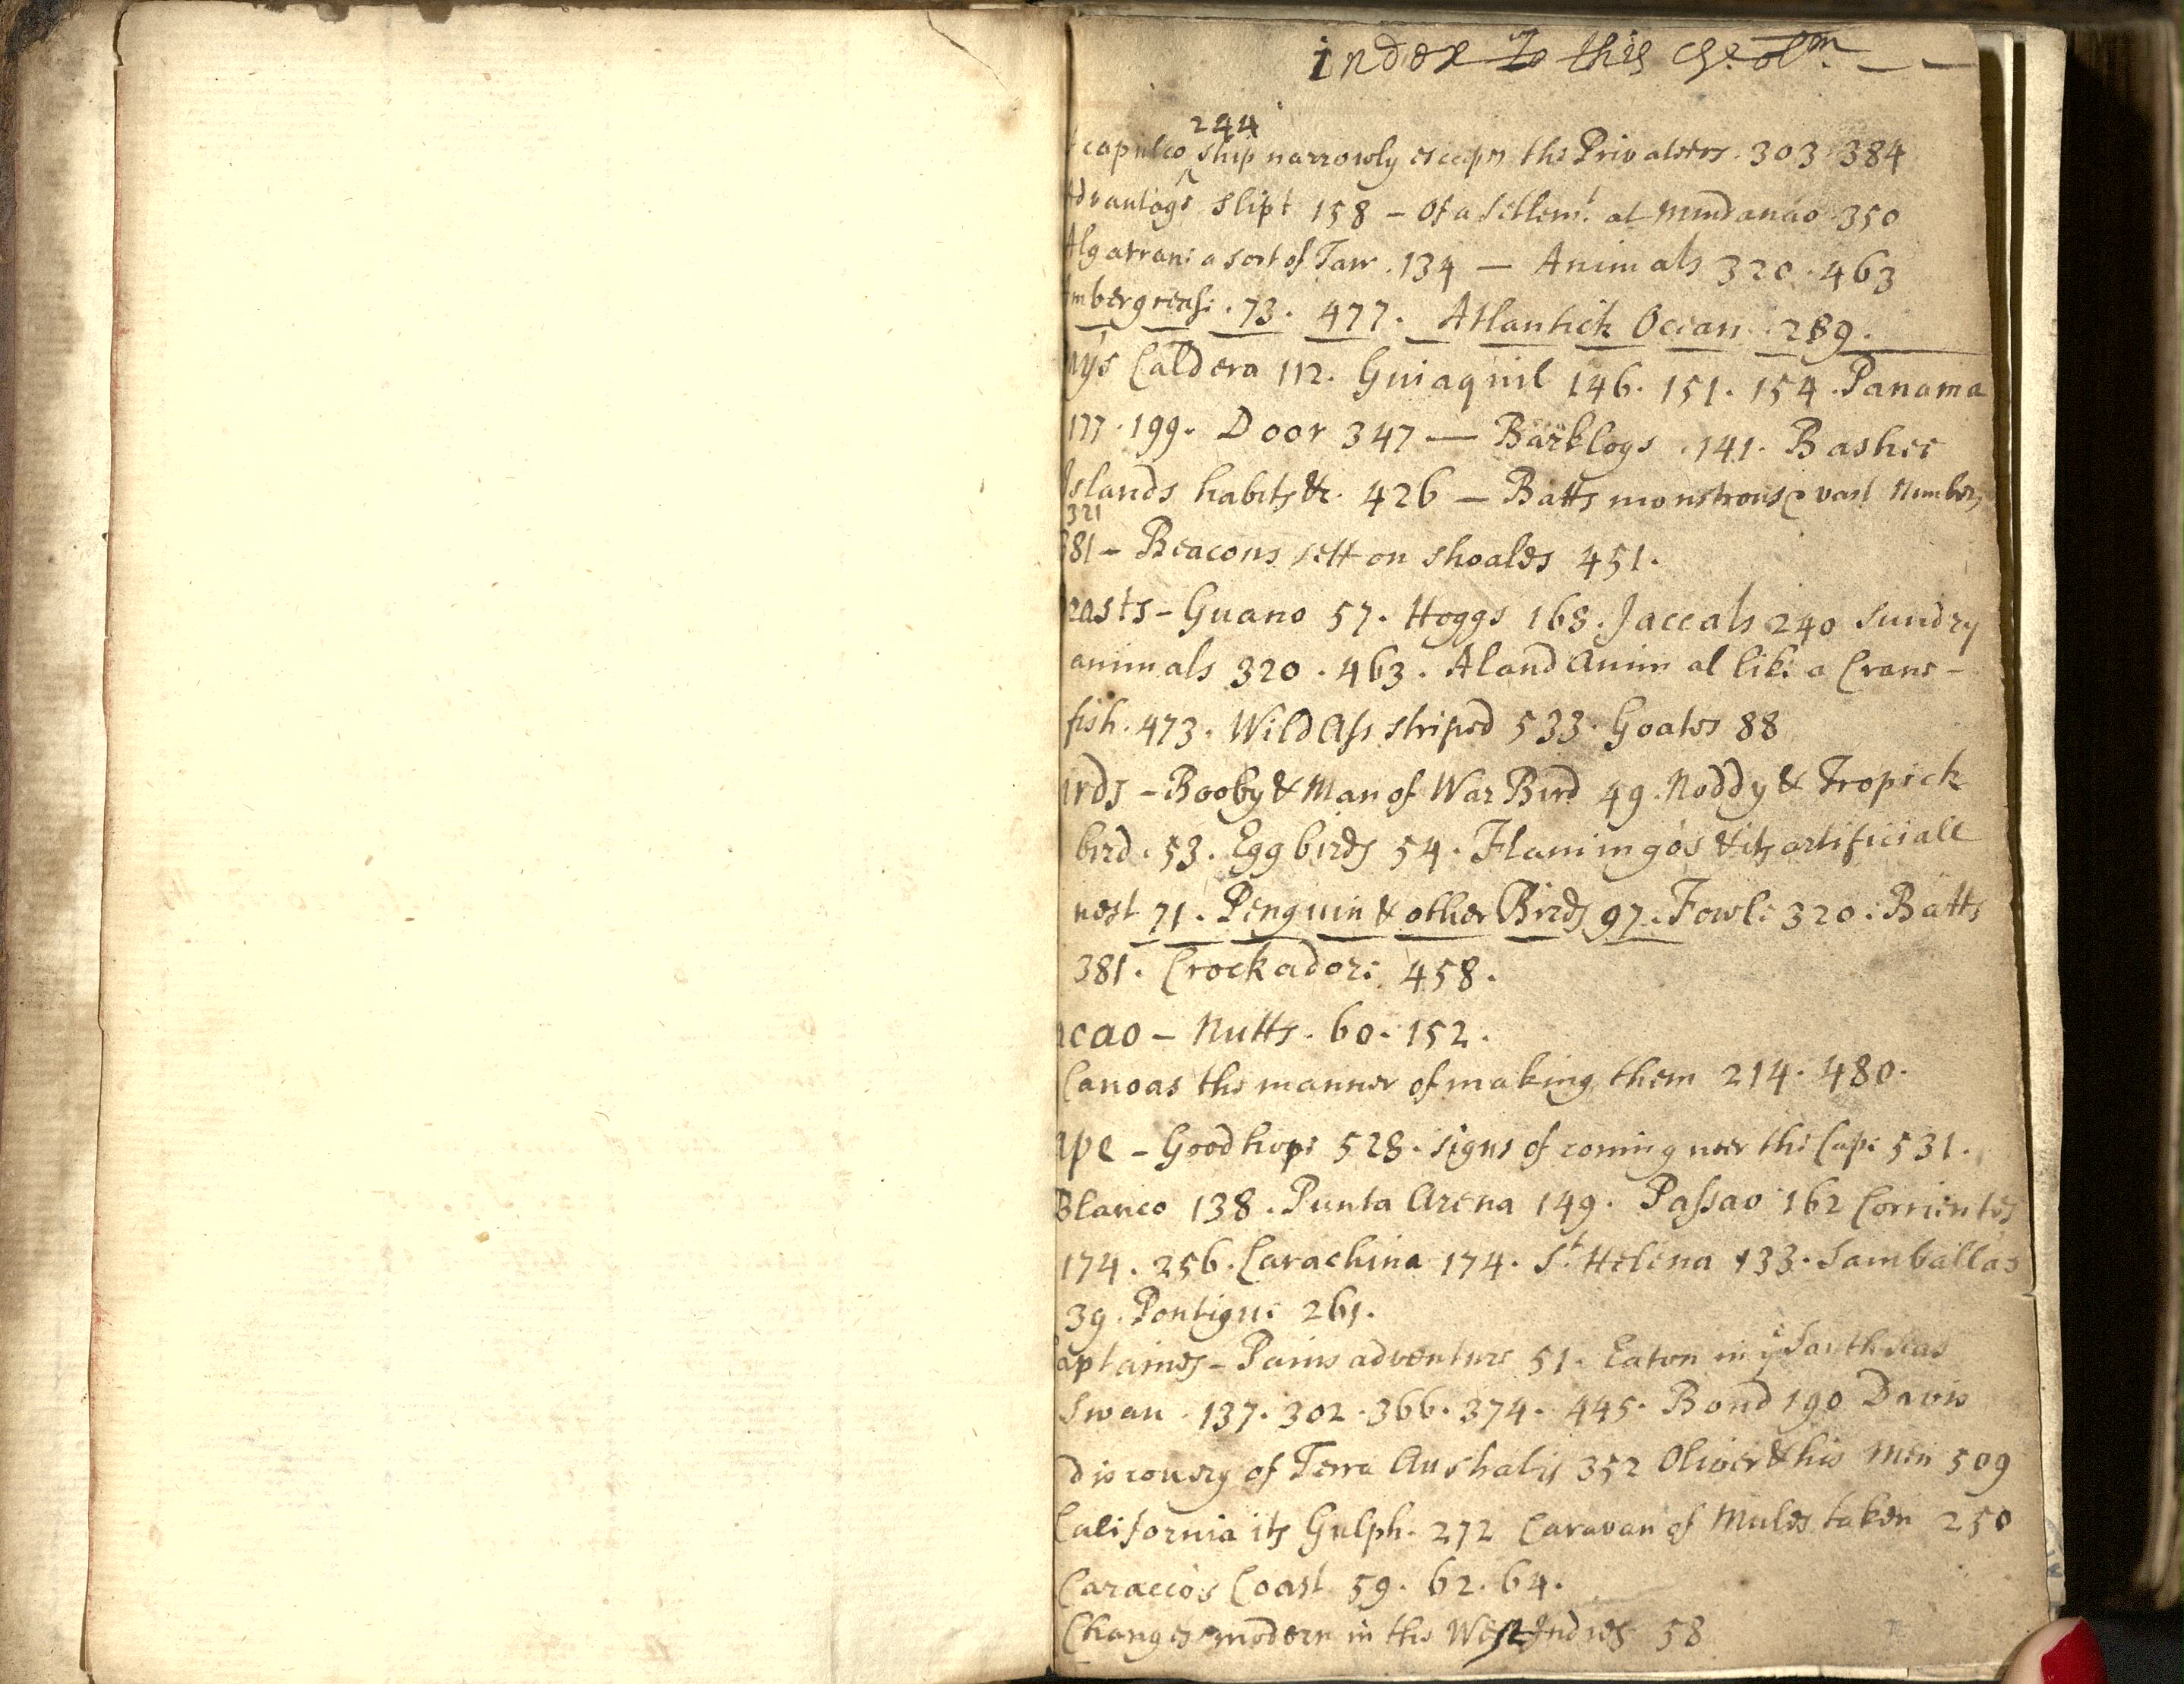 index To this
244
capulco ship narrowly escapes the Privateers. 303. 384
Advantage slipt 158 - Of a settlemt. at Mindanao. 350
Algatrane a sort of Tarr. 134 — Animals 320. 463
mbergrease. 73. 477. Atlantick Ocean. 289.
ays Caldera 112. Guiaquil 146. 151. 154. Panama
177. 199. Door 347 — Barklogs. 141. Bashee
Islands habits &c. 426 — Batts monstrous & vast Numbers
321
381 - Beacons sett on shoales 451.
easts - Guano 57. Hoggs 168. Jaccals 240 Sundry
animals 320. 463. A land Animal like a Craw-
fish. 473. Wild Ass striped 533. Goates 88
irds - Booby & Man of War Bird 49. Noddy & Tropick
bird. 53. Egg birds 54. Flamingo's & its artificiall
nest 71. Penguin & other Birds 97. Fowle 320. Batts
381. Crockadore 458.
acao - Nutts. 60. 152.
Canoas the manner of making them 214. 480.
ape - Good hope 528. signs of coming neer the Cape 531.
Blanco 138. Punta Arena 149. Passao 162 Corrientes
174. 256. Carachina 174. St. Helena 133. Samballas
39. Pontique 261.
aptaines - Pains adventure 51. Eaton in ye South seas
Swan. 137. 302. 366. 374. 445. Bond 190 Davis
discovery of Terra Australis 352 Oliver & his Men 509
California its Gulph. 272 Caravan of Mules taken 250
Caracco's Coast 59. 62. 64.
Changes modern in the West Indies 58